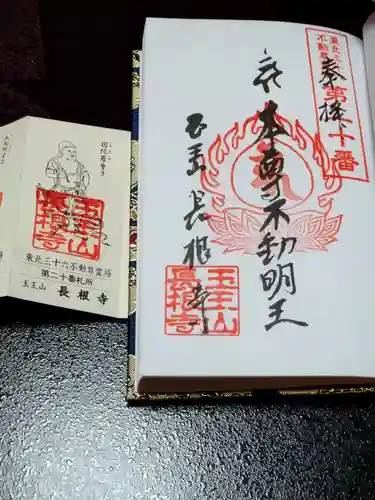 東北三十六
不動尊
第二十番
奉拝
本尊不動明王
玉王山
長根寺
玉王山
長根寺
玉王山
長根寺
東北三十六不動尊霊場
第二十番札所
玉王山 長根寺